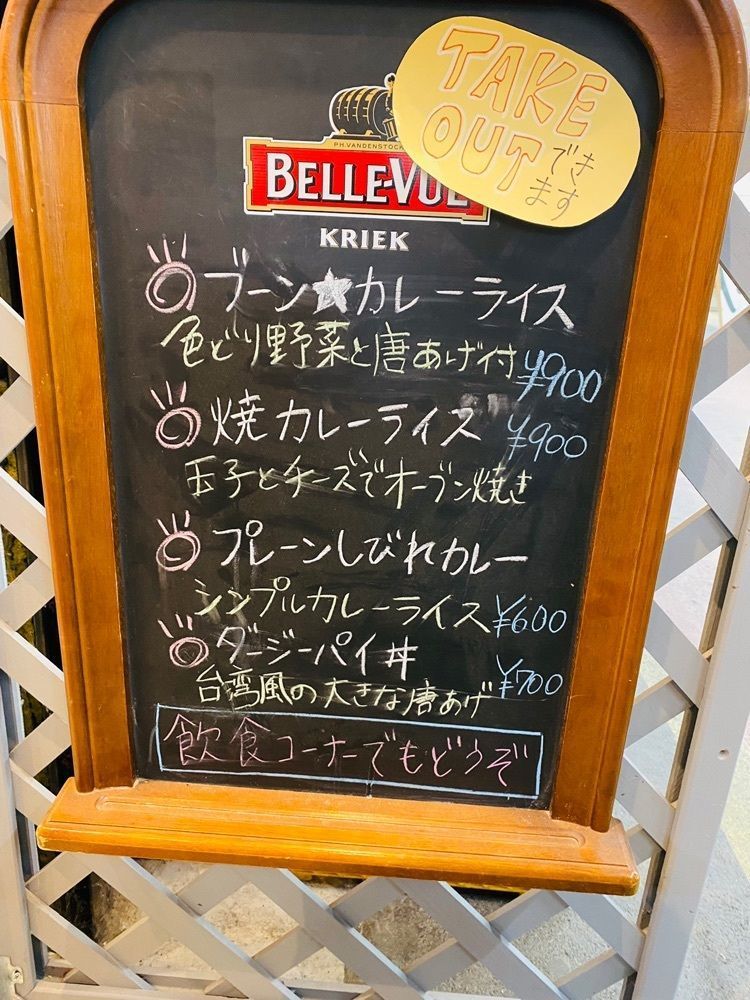 TAKE
OUT
できます
PH.VANDENSTOCK
BELLE-VUE
KRIEK
ブーン★カレーライス
色どり野菜と唐あげ付 ¥900
焼カレーライス ¥900
玉子とチーズでオーブン焼き
プレーンしびれカレー
シンプルカレーライス ¥600
ダージーパイ丼 ¥700
台湾風の大きな唐あげ
飲食コーナーでもどうぞ